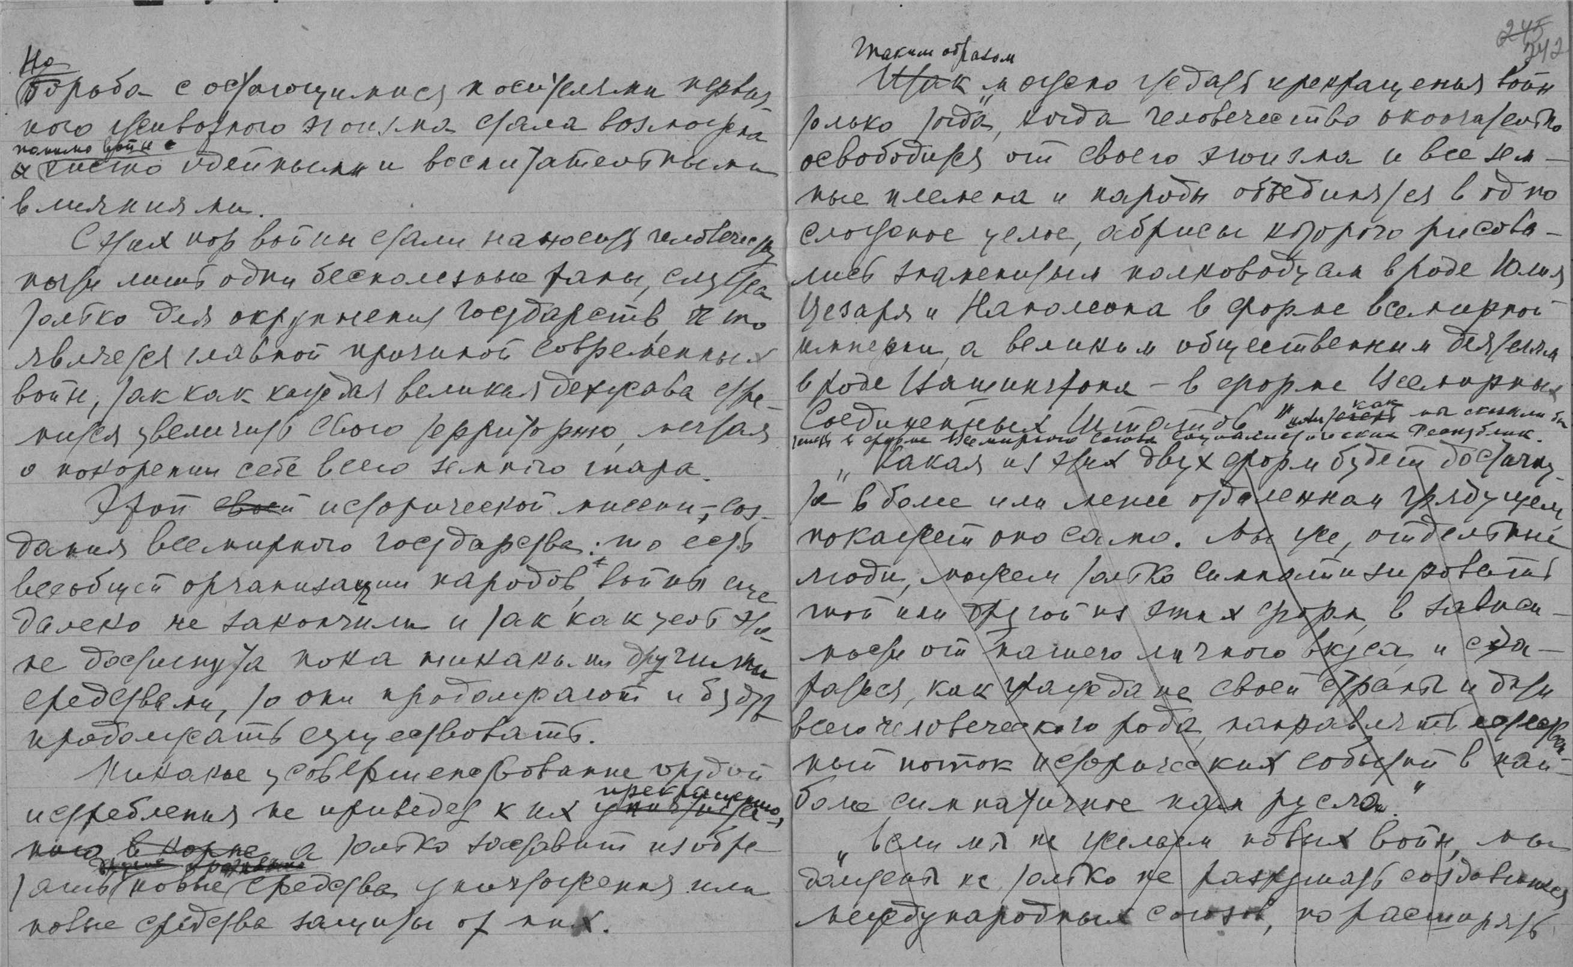 Но
борьба с остающимися носителями первич-
ного животного эгоизма стала возможна
помимо войн
и чисто идейными и воспитательными
влияниями.
С этих пор войны стали наносить человечест-
ву лишь одни бесполезные раны, служа
только для окрупнения государств, что
является главной причиной современных
войн, так как каждая великая держава стре-
мится увеличить свою территорию, мечтая
о покорении себе всего земного шара.
Этой своей исторической миссии, — соз-
дания всемирного государства, то есть
всеобщей организации народов, войны еще
далеко не закончили и так как цель эта
не достигнута пока никакими другими
средствами, то они продолжают и будут
продолжать существовать.
Никакое усовершенствование орудий
прекращению,
истребления не приведет к их
в корне, а только заставит изобре-
тать новые средства уничтожения или
новые средства защиты от них.
245
242
Таким образом
Итак можно ждать прекращения войн
только тогда, когда человечество окончательно
освободится от своего эгоизма и все зем-
ные племена и народы объединятся в одно
сложное целое, абрисы которого рисова-
лись знаменитым полководцам вроде Юлия
Цезаря и Наполеона в форме всемирной
империи, а великим общественным деятелям
вроде Вашингтона — в форме Всемирных
Соединенных Штатов как мы сказали бы
в форме Всемирного союза социалистических Республик.
„Какая из этих двух форм будет достигну-
та" в более или менее отдаленном грядущем,
покажет оно само. Мы же, отдельные
люди, можем только симпатизировать
той или другой из этих форм, в зависи-
мости от нашего личного вкуса, и ста-
раться, как граждане своей страны и дети
всего человеческого рода, направлять
ный поток исторических событий в наи-
более симпатичное нам русло."
„Если мы не желаем новых войн, мы
должны не только не разрушать создавшихся
международных союзов, но расширять